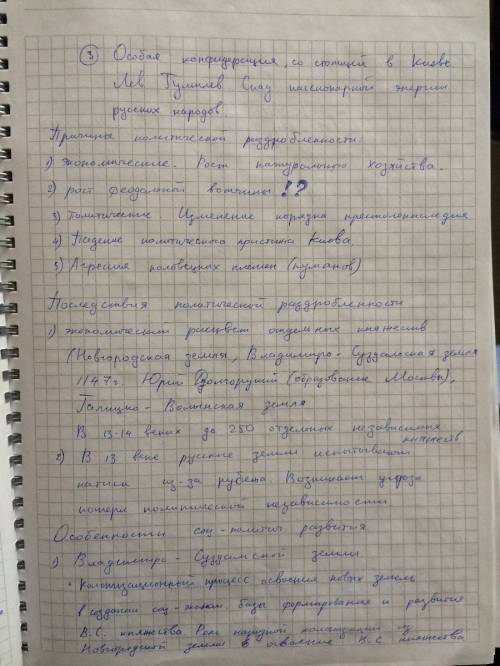 ③ Особая конфидерация, со столицей в Киеве
Лев Гумилев Спад пассионарной энергии
русских народов
Причины политической раздробленности
1) Экономические. Рост натурального хозяйства.
2) рост феодальной вотчины !?
3) Политические Изменение порядка престолонаследия
4) Падение политического престижа Киева
5) Агрессия половецких племен (куманов)
Последствия политической раздробленности
1) экономический расцвет отдельных княжеств
(Новгородская земля, Владимиро-Суздальская земля
1147г. Юрий Долгорукий (образование Москвы),
Галицко-Волынская земля
В 13-14 веках до 250 отдельных независимых
княжеств
2) В 13 веке русские земли испытывают
натиск из-за рубежа. Возникает угроза
потери политической независимости
Особенности соц-полит развития
1) Владимиро-Суздальской земли
• Колонизационный процесс освоения новых земель
создании соц-эконом базы формирования и развития
В.С. княжества Роль народной колонизации из
Новгородской земли в освоение В.С. княжества